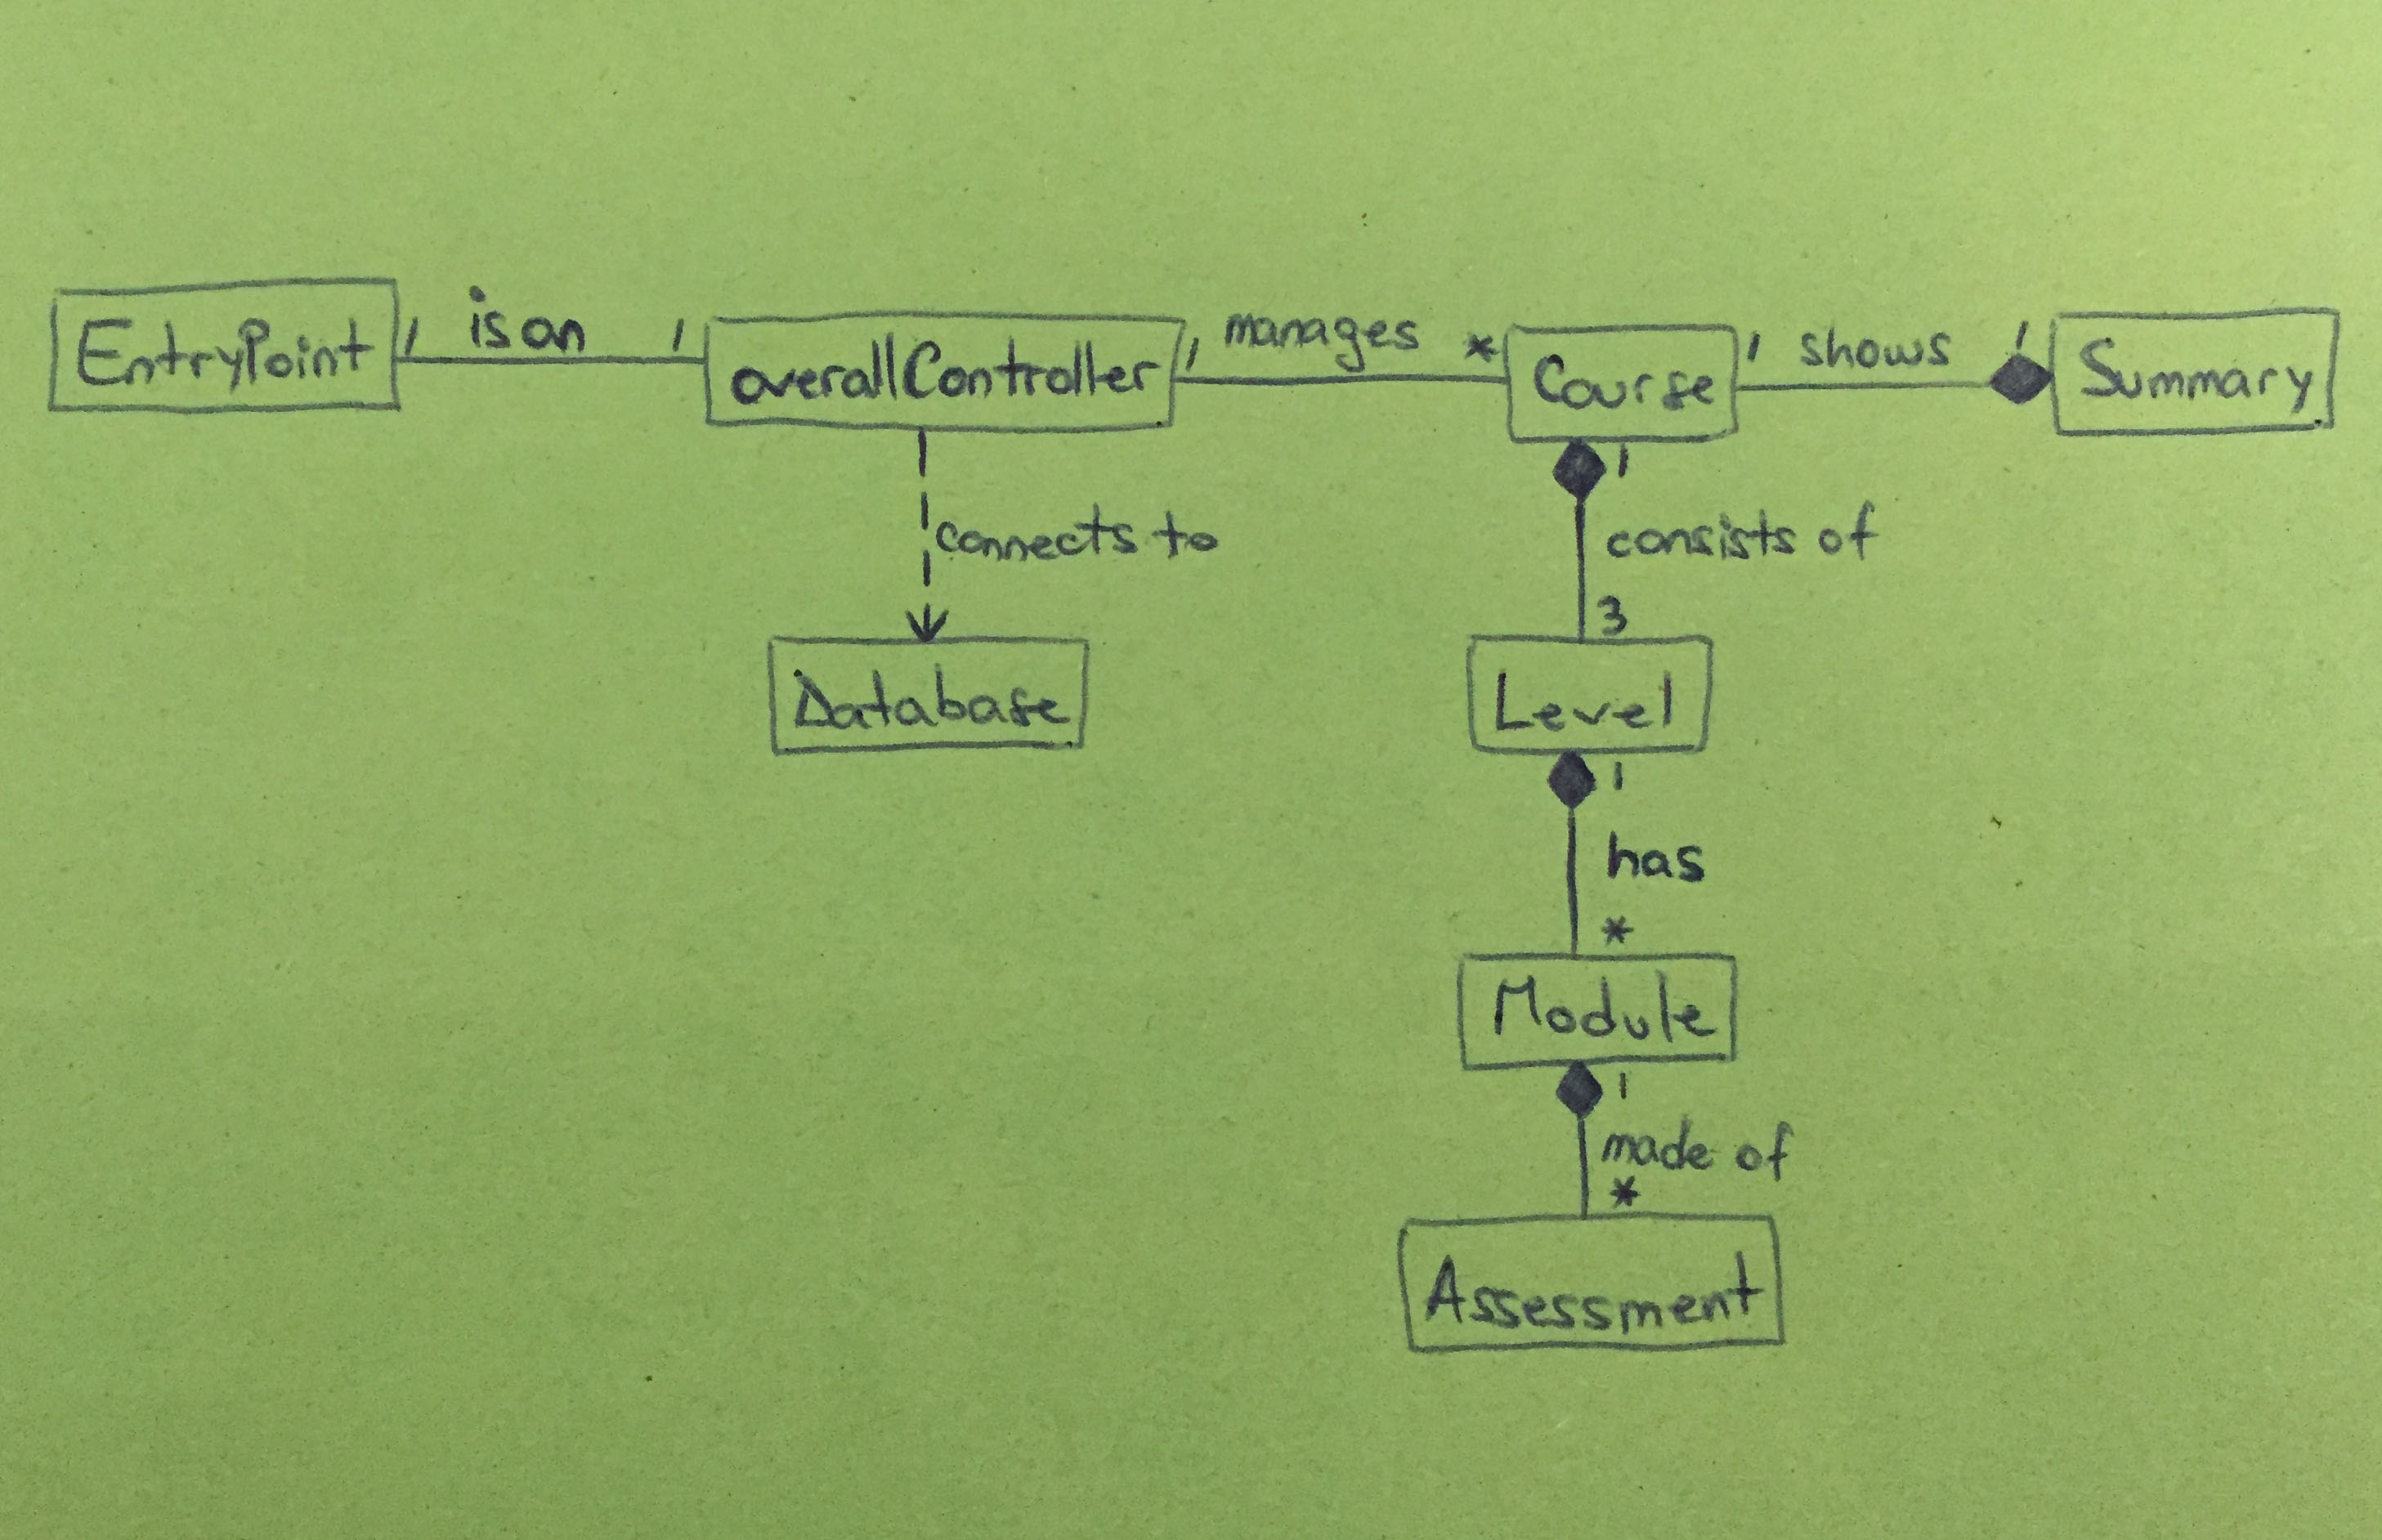 EntryPoint 1 is an 1 overallController 1 manages * Course 1 shows 1 Summary
connects to
1
consists of
3
Database
Level
1
has
*
Module
1
made of
*
Assessment